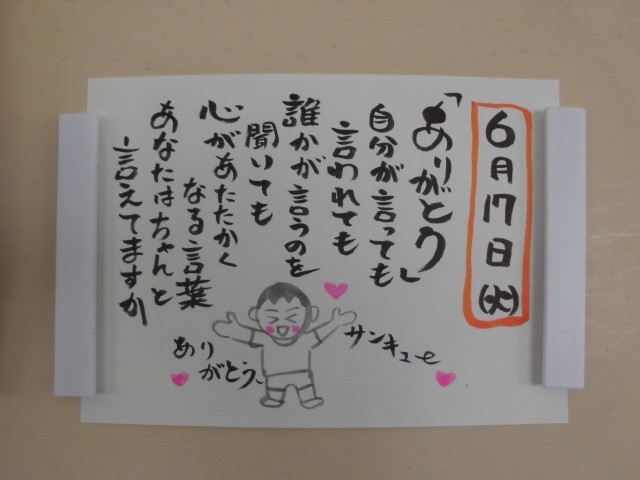 6月17日(火)
「ありがとう」
自分が言っても
言われても
誰かが言うのを
聞いても
心があたたかく
なる言葉
あなたはちゃんと
言えてますか
サンキュー
ありがとう、